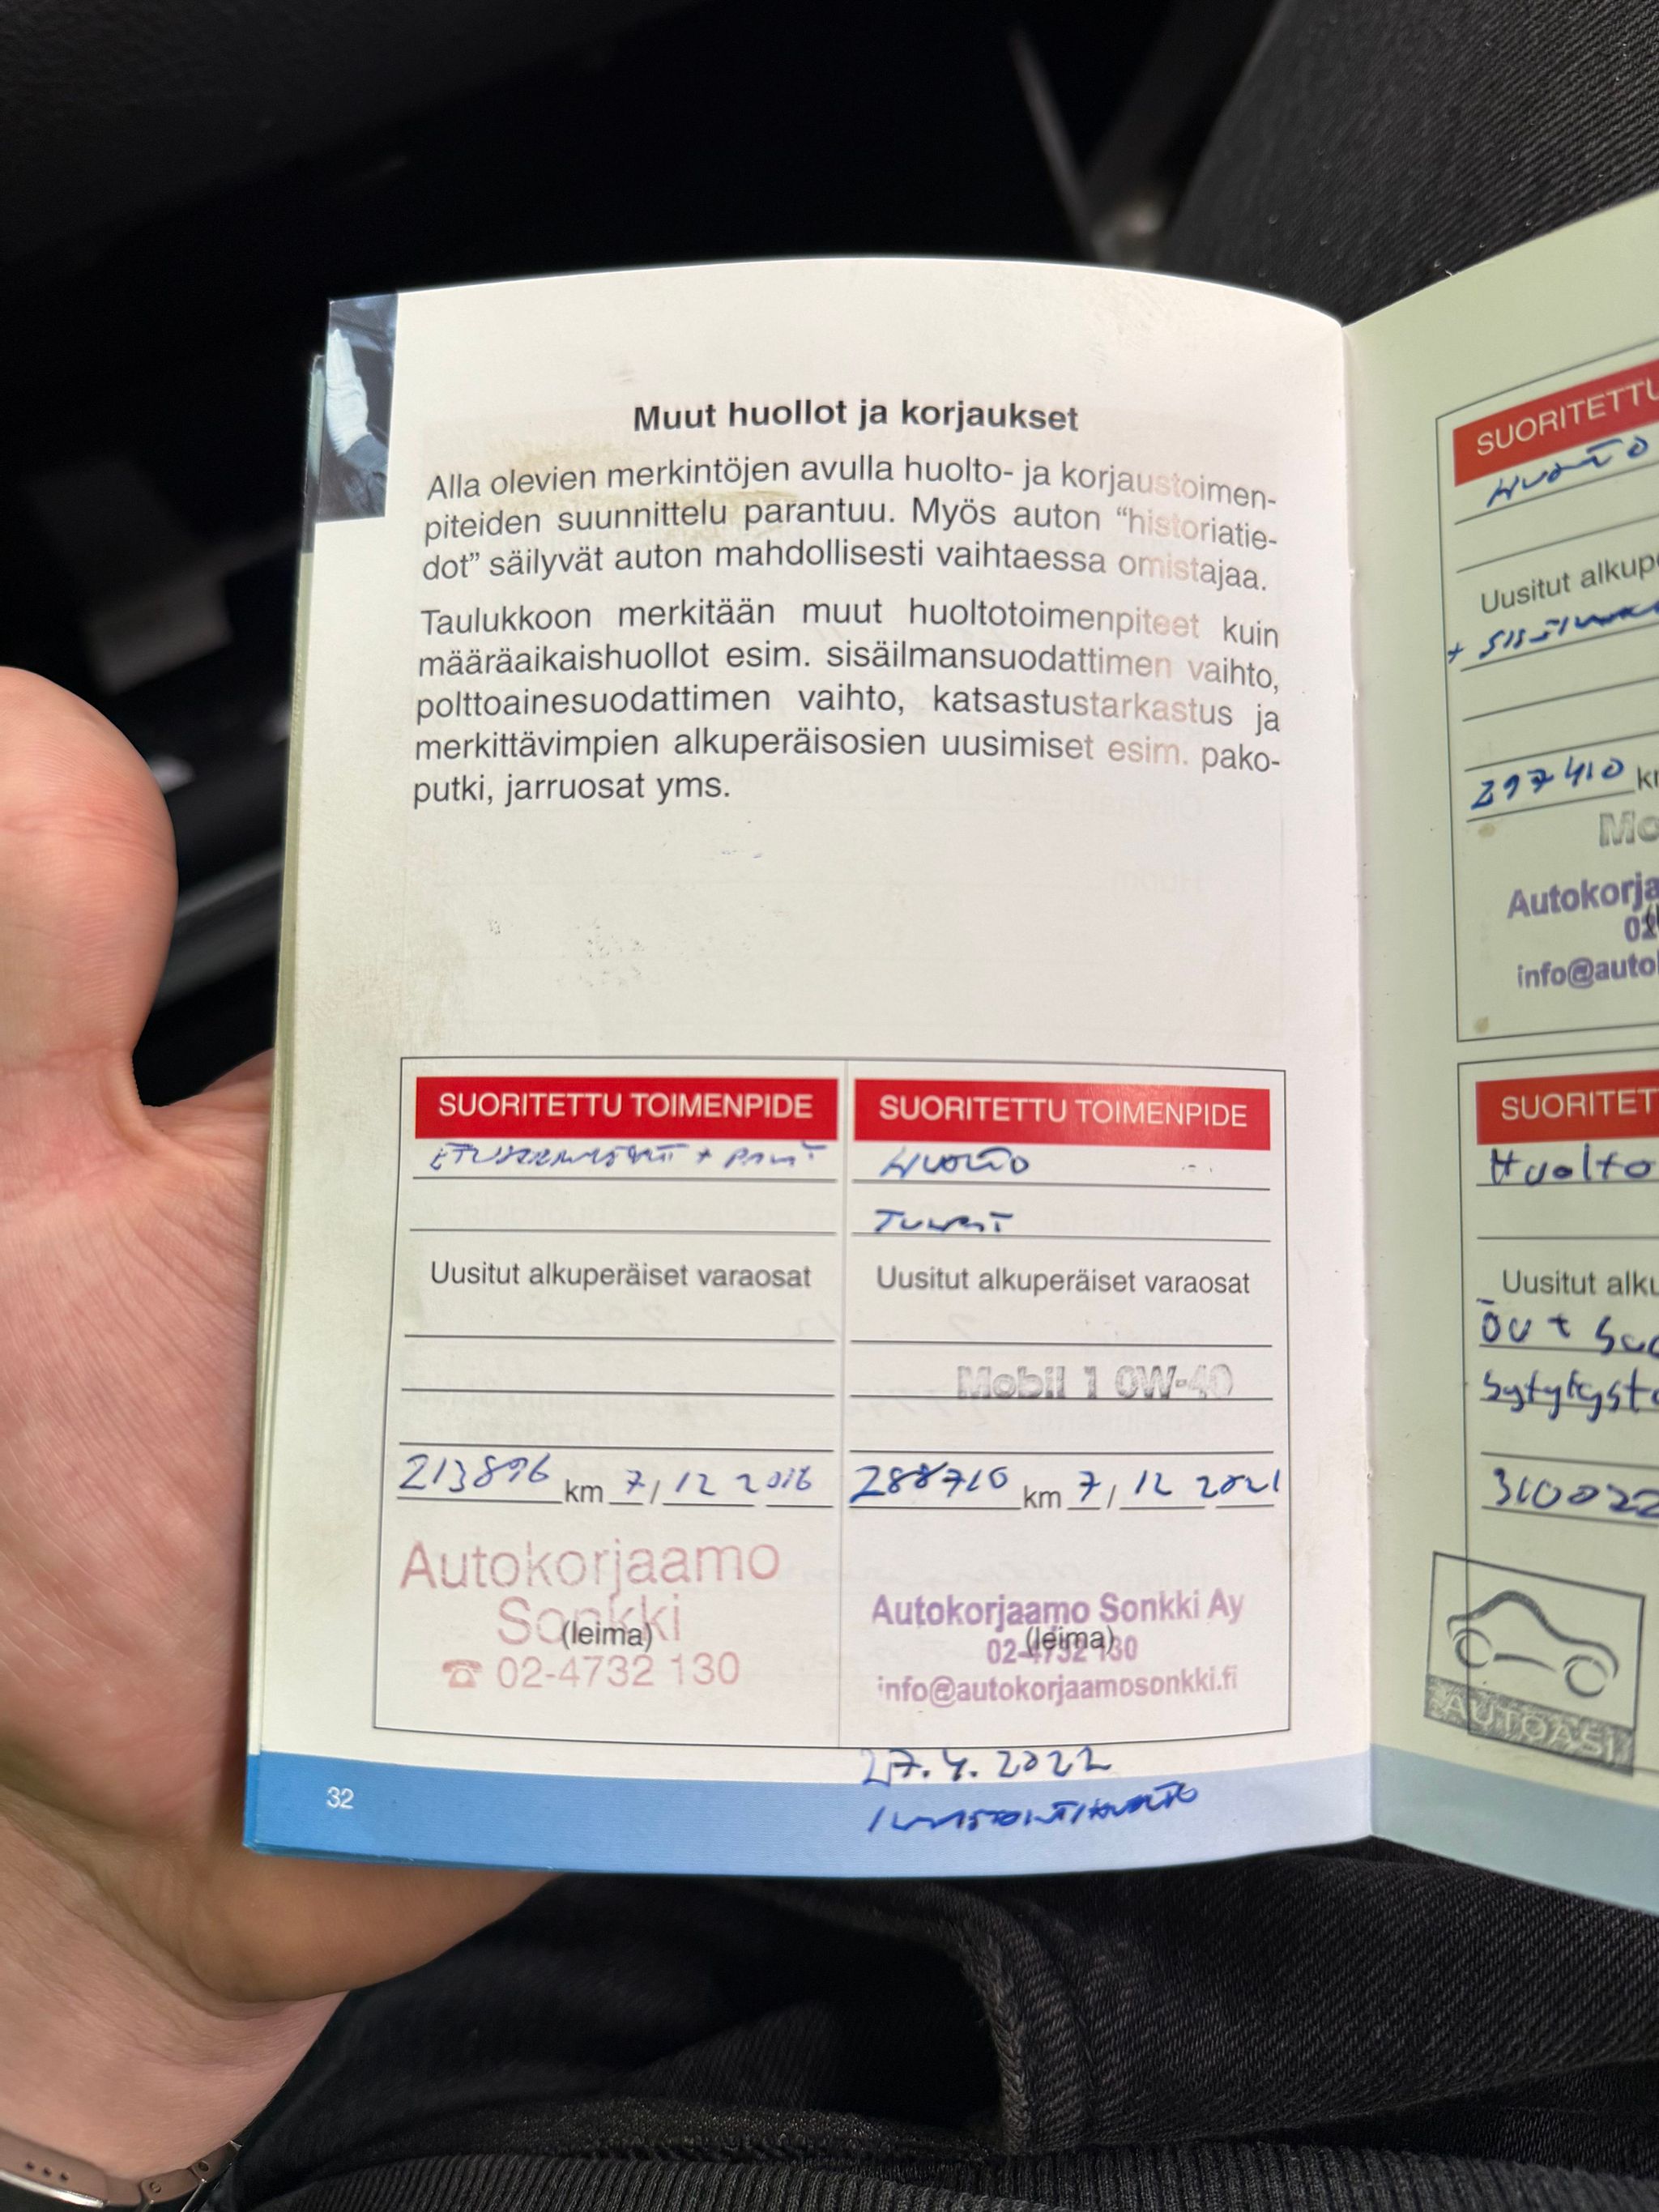 Muut huollot ja korjaukset
Alla olevien merkintöjen avulla huolto- ja korjaustoimen-
piteiden suunnittelu parantuu. Myös auton “historiatie-
dot” säilyvät auton mahdollisesti vaihtaessa omistajaa.
Taulukkoon merkitään muut huoltotoimenpiteet kuin
määräaikaishuollot esim. sisäilmansuodattimen vaihto,
polttoainesuodattimen vaihto, katsastustarkastus ja
merkittävimpien alkuperäisosien uusimiset esim. pako-
putki, jarruosat yms.
SUORITETTU TOIMENPIDE
Uusitut alkuperäiset varaosat
213896 km 7/12 2016
Autokorjaamo
Sonkki
(leima)
☎ 02-4732 130
SUORITETTU TOIMENPIDE
HUOLTO
TULPAT
Uusitut alkuperäiset varaosat
Mobil 1 0W-40
288710 km 7/12 2021
Autokorjaamo Sonkki Ay
(leima)
02-4732 130
info@autokorjaamosonkki.fi
27.4.2022
ILMASTOINTIHUOLTO
32
SUORITETTU
HUOLTO
Uusitut alkupe
297410 k
Mo
Autokorja
02
info@autok
SUORITET
Huolto
Uusitut alku
310022
AUTOASI